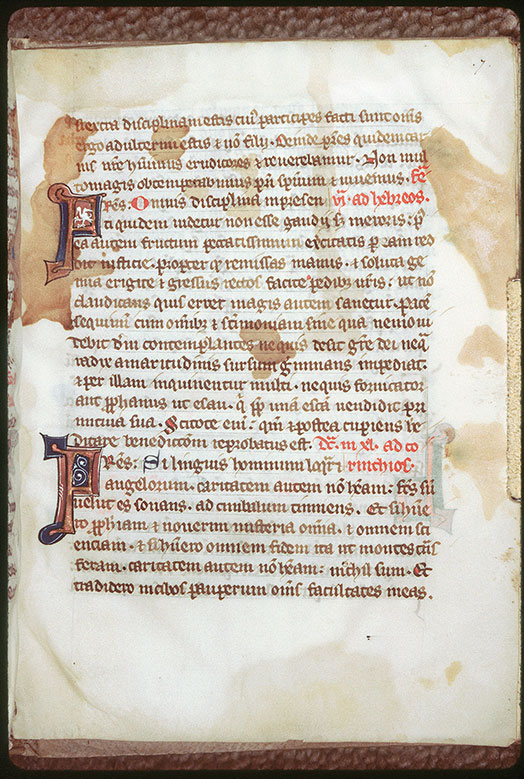 si extra disciplinam estis cui' participes facti sunt om̅s
ergo adulterini estis & nō filij. Deinde p̅res quidem car
nis nr̅e habuimus eruditores & reverebamur. Non mul
to magis obtemperabimus pr̅i spirituum & vivemus. Fe̅
Fres. Omnis disciplina in presen vi. ad hebreos.
ti quidem videtur non esse gaudij s; meroris: p̅
ea autem fructum pecatissimum exercitatis p̅ eam red
dit iusticie. propter q̅ remissas manus. & soluta ge
nua erigite & gressus rectos facite pedib; vr̅is: ut nō
claudicans quis erret magis autem sanetur. pacē
sequimini cum omīb; & scī̅moniam sine qua nemo vi
debit dm̅ contemplantes nequis desit gr̅e dei neq̅
radix amaritudinis sursum g̅minans impediat.
& per illam inquinentur multi. nequis fornicator
aut p̅phanus ut esau. q̅ p̅ unā escā vendidit pri
mitiva sua. Scitote eni: qm̅ & postea cupiens he
ditare benedictōm reprobatus est. Dn̅. in xl. ad co
Fres: Si linguis hominum loq̅r & rinthios.
angelorum. caritatem autem nō hēam: fc̅s sū
velut es sonans. ad cimbalum tinniens. Et si habue
ro p̅phiam & noverim misteria om̅ia. & omnem sci
enciam. & si habuero omnem fidem ita ut montes trās
feram. caritatem autem nō hēam: nichil sum. Et
tradidero in cibos pauperum om̅s facultates meas.